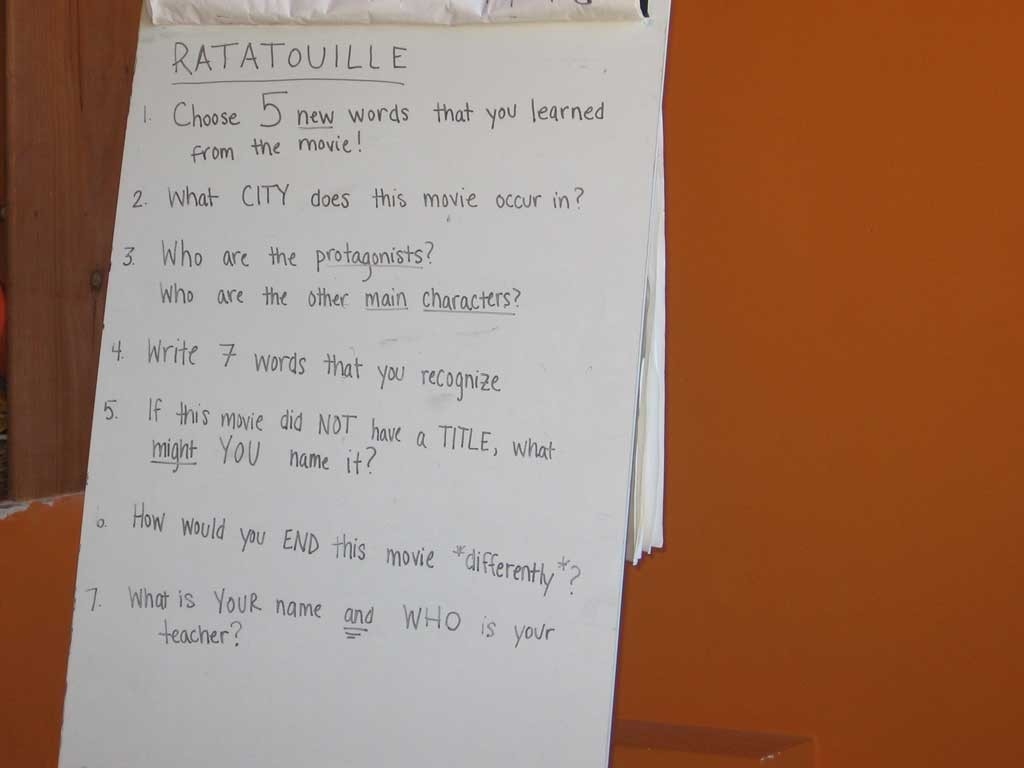 RATATOUILLE
1. Choose 5 new words that you learned
from the movie!
2. What CITY does this movie occur in?
3. Who are the protagonists?
Who are the other main characters?
4. Write 7 words that you recognize
5. If this movie did NOT have a TITLE, what
might YOU name it?
6. How would you END this movie *differently*?
7. What is YOUR name and WHO is your
teacher?